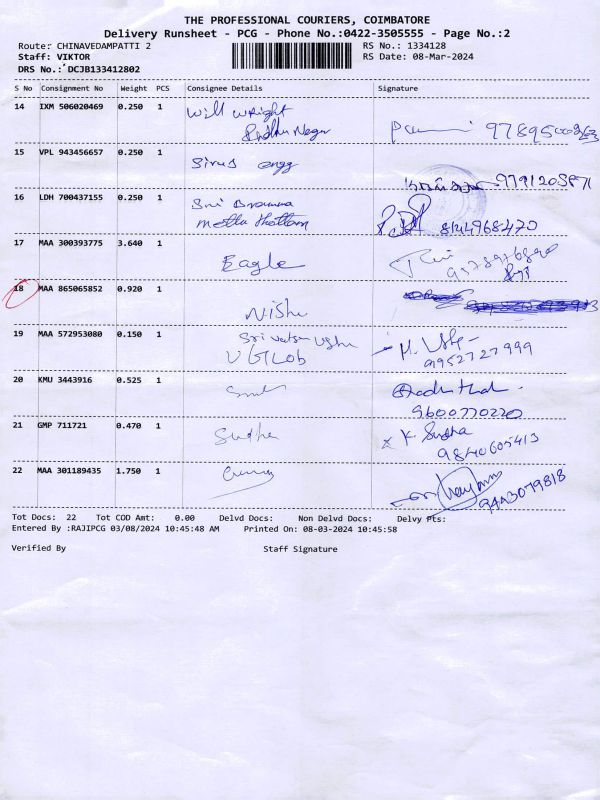 THE PROFESSIONAL COURIERS, COIMBATORE
Delivery Runsheet - PCG - Phone No.:0422-3505555 - Page No.:2
Route: CHINAVEDAMPATTI 2 RS No.: 1334128
Staff: VIKTOR RS Date: 08-Mar-2024
DRS No.: DCJB133412802
S No Consignment No Weight PCS Consignee Details Signature
14 IXM 506020469 0.250 1 Will Wright
Nagar
15 VPL 943456657 0.250 1 Sirus engg
16 LDH 700437155 0.250 1 Sri
Thottam 8144968470
17 MAA 300393775 3.640 1 Eagle
18 MAA 865065852 0.920 1 Nishu
19 MAA 572953080 0.150 1
9952727999
20 KMU 3443916 0.525 1
9600770220
21 GMP 711721 0.470 1 Sudha K Sudha
9840605413
22 MAA 301189435 1.750 1
9443079818
Tot Docs: 22 Tot COD Amt: 0.00 Delvd Docs: Non Delvd Docs: Delvy Pts:
Entered By :RAJIPCG 03/08/2024 10:45:48 AM Printed On: 08-03-2024 10:45:58
Verified By Staff Signature